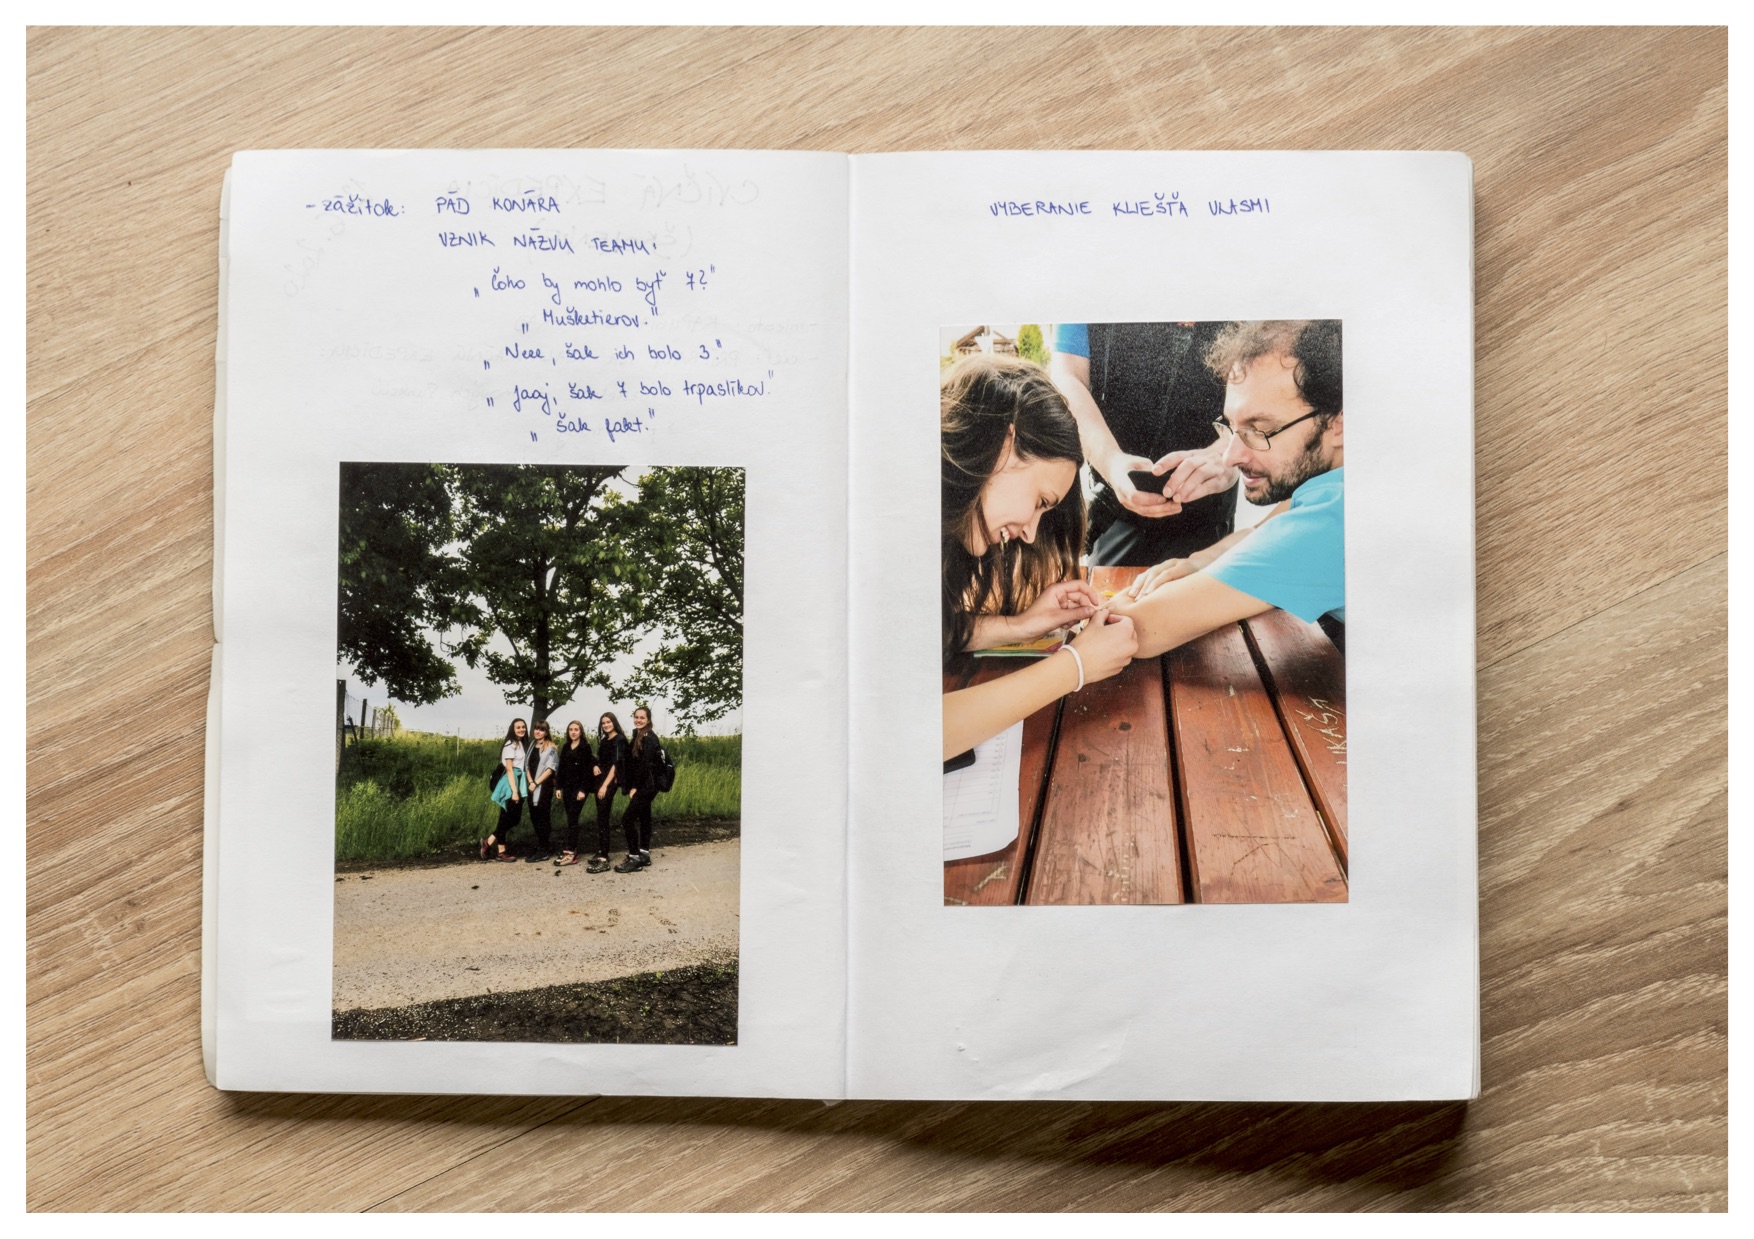 - zážitok: PÁD KONÁRA
VZNIK NÁZVU TEAMU:
„Čoho by mohlo byť 7?"
„Mušketierov."
„Neee, šak ich bolo 3."
„Jaaj, šak 7 bolo trpaslíkov."
„Šak fakt."
VYBERANIE KLIEŠŤA VLASMI